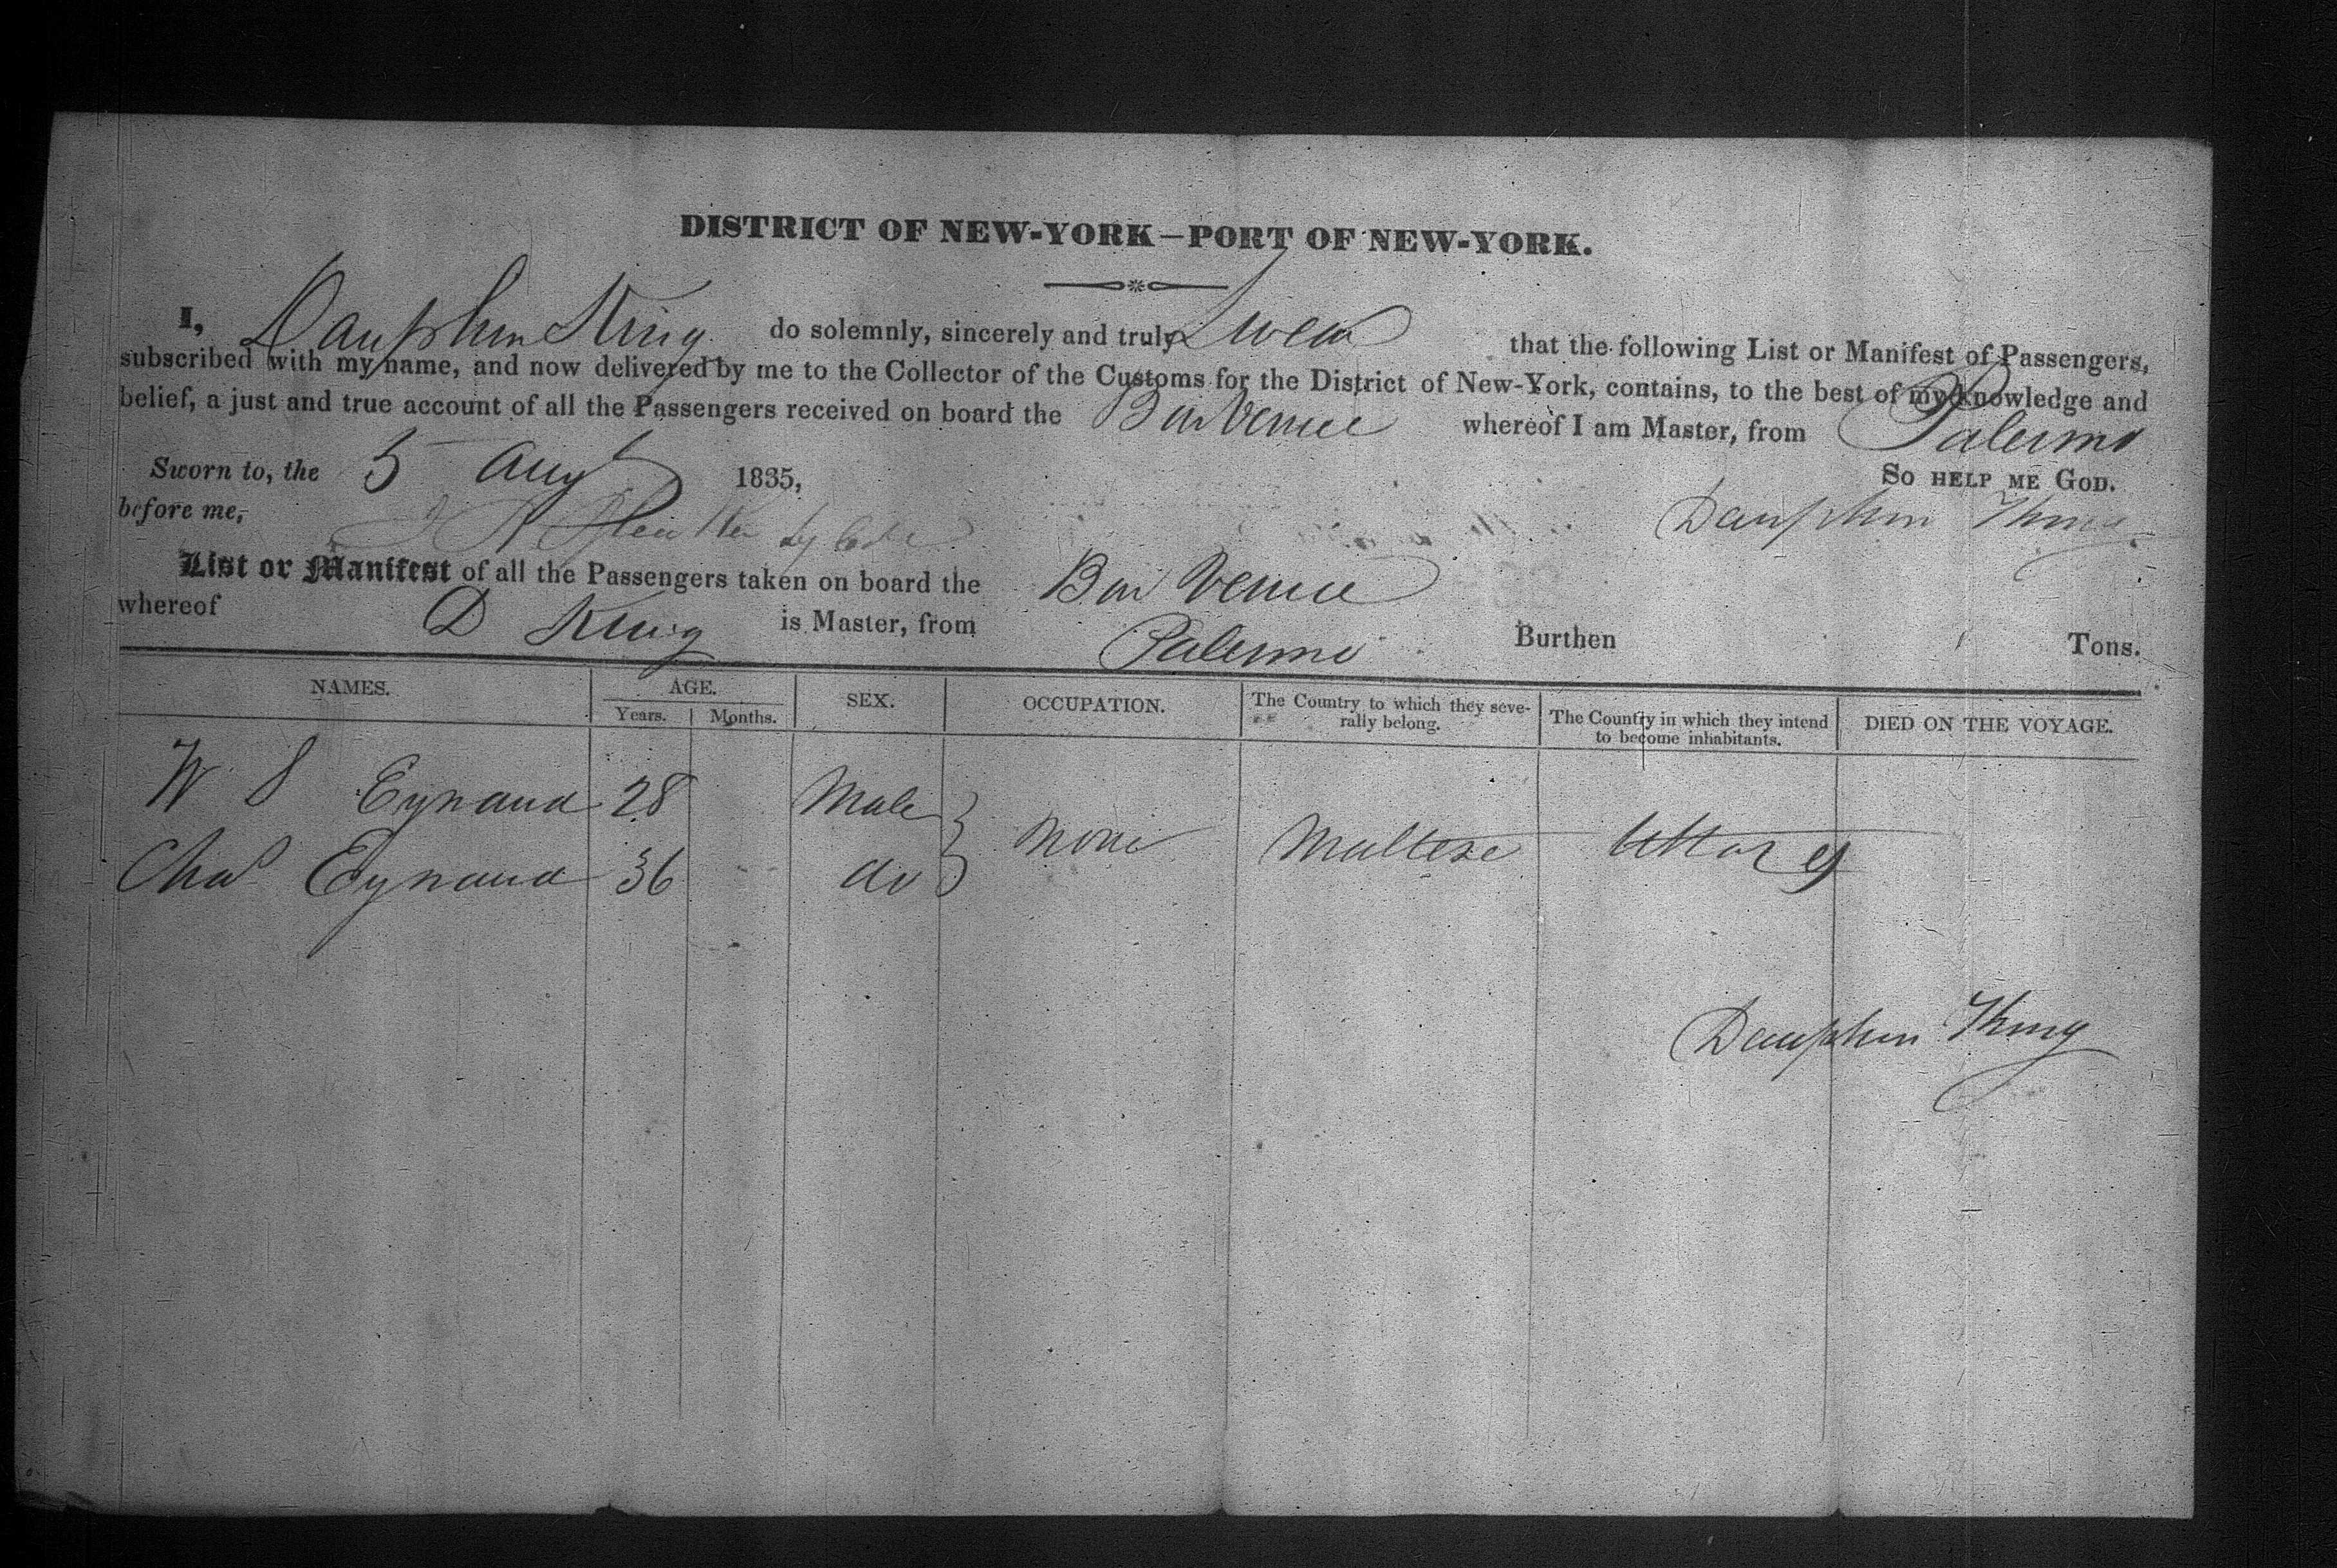 DISTRICT OF NEW-YORK—PORT OF NEW-YORK.
I, Dauphin King do solemnly, sincerely and truly Swear that the following List or Manifest of Passengers,
subscribed with my name, and now delivered by me to the Collector of the Customs for the District of New-York, contains, to the best of my knowledge and
belief, a just and true account of all the Passengers received on board the Bar Venice whereof I am Master, from Palermo
Sworn to, the 5 Augt 1835, So HELP ME GOD.
before me, Dauphin King
List or Manifest of all the Passengers taken on board the Bar Venice
whereof D King is Master, from Palermo Burthen Tons.
NAMES. AGE. SEX. OCCUPATION. The Country to which they seve-
rally belong. The Country in which they intend
to become inhabitants. DIED ON THE VOYAGE.
Years. Months.
W S Eynaud 28 Male
none Maltese
Chas Eynaud 36 do
Dauphin King